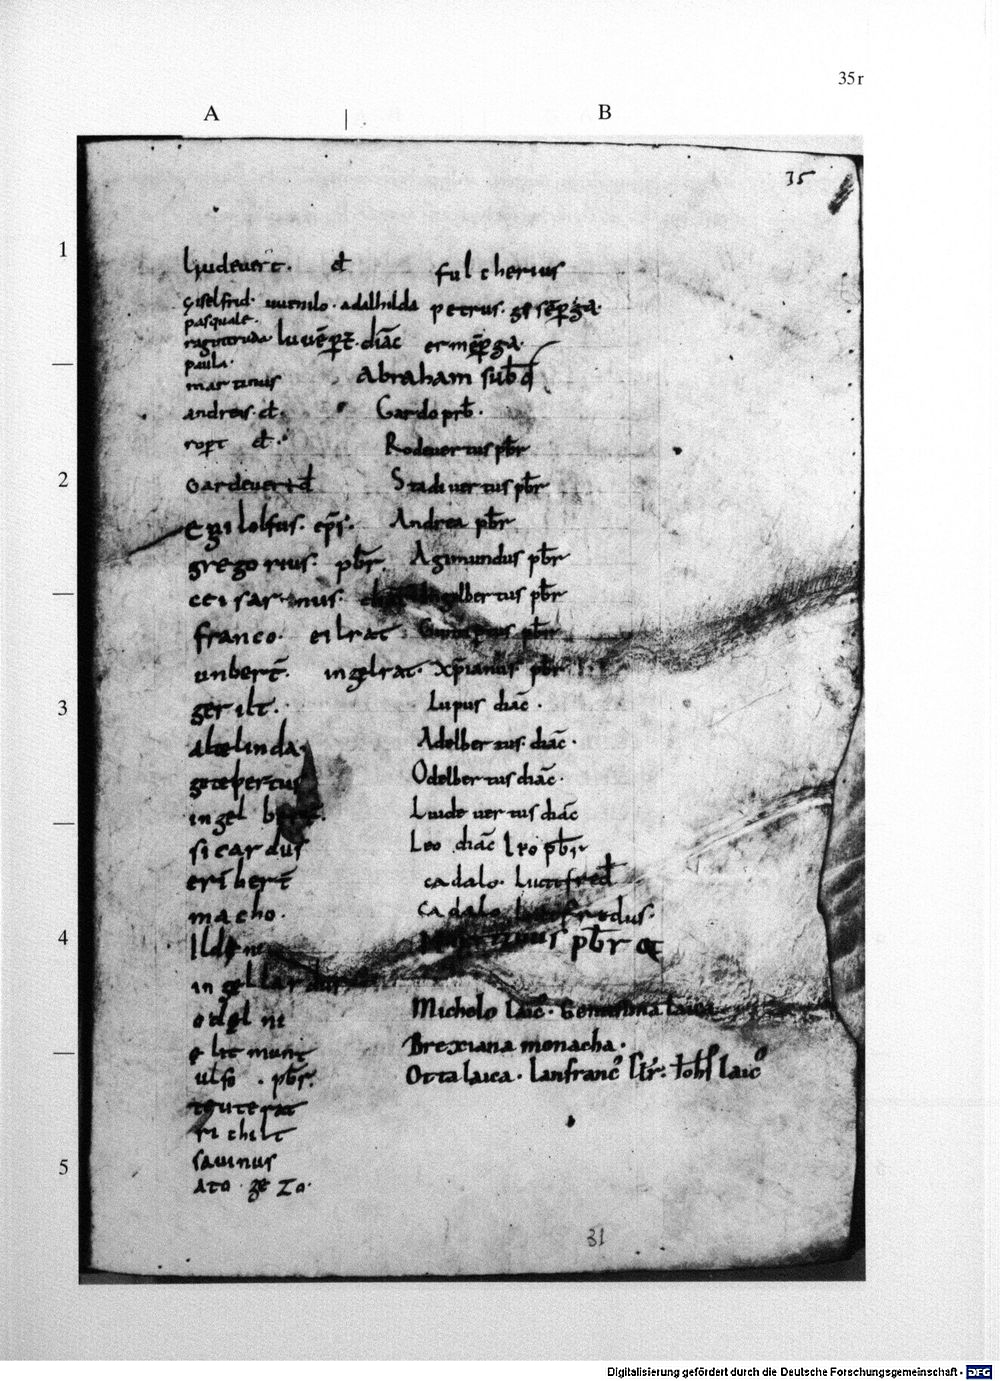 35r
A B
35
1
liudevert. cl
fulcherius
giselfrid. uuenilo. adalhilda
petrus. geseperga.
pasquale.
ragintruda luvēpt. diāc
ermēpga.
paula.
martinus
abraham subd
andreas. cl.
Gardo prb.
ropt cl.
Rodevertus pbr
2
Gardevert d
Stadivertus pbr
Egilolfus. epi.
Andrea pbr
gregorius. pbr.
Agimundus pbr
ceisarinus.
Ingelbertus pbr
franco. eilrat
pbr
unbert. ingelrat.
xpianus pbr
3
gerilt.
Lupus diāc.
abelinda.
Adelbertus. diāc.
getepertus
Odelbertus diāc.
ingel
Liudevertus diāc
sicardus
Leo diāc leo pbr
eribert
cadalo. lutefred
macho.
cadalo lutefredus.
4
Ildeni
pbr &
ingellardus
odelni
Michelo laic. Gemusina laica
elitmunt
Brexiana monacha.
ulfo. pbr.
Otta laica. lanfranc
laic
teuterat
richilt
5
savinus
ato gezo.
31
Digitalisierung gefördert durch die Deutsche Forschungsgemeinschaft - DFG